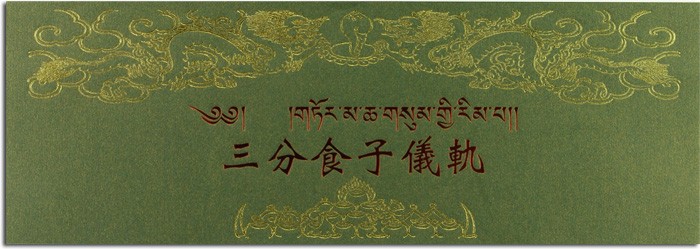 ༄༅། །གཏོར་མ་ཆ་གསུམ་གྱི་རིམ་པ།།
三分食子儀軌